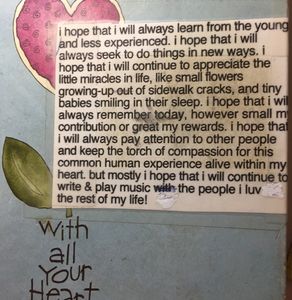 i hope that i will always learn from the young
and less experienced. i hope that i will
always seek to do things in new ways. i
hope that i will continue to appreciate the
little miracles in life, like small flowers
growing-up out of sidewalk cracks, and tiny
babies smiling in their sleep. i hope that i will
always remember today, however small my
contribution or great my rewards. i hope that
i will always pay attention to other people
and keep the torch of compassion for this
common human experience alive within my
heart. but mostly i hope that i will continue to
write & play music with the people i luv
the rest of my life!
With
all
Your
Heart